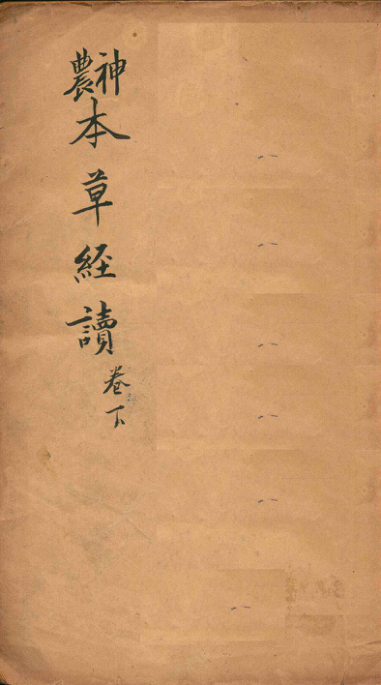 神農本草經讀卷下